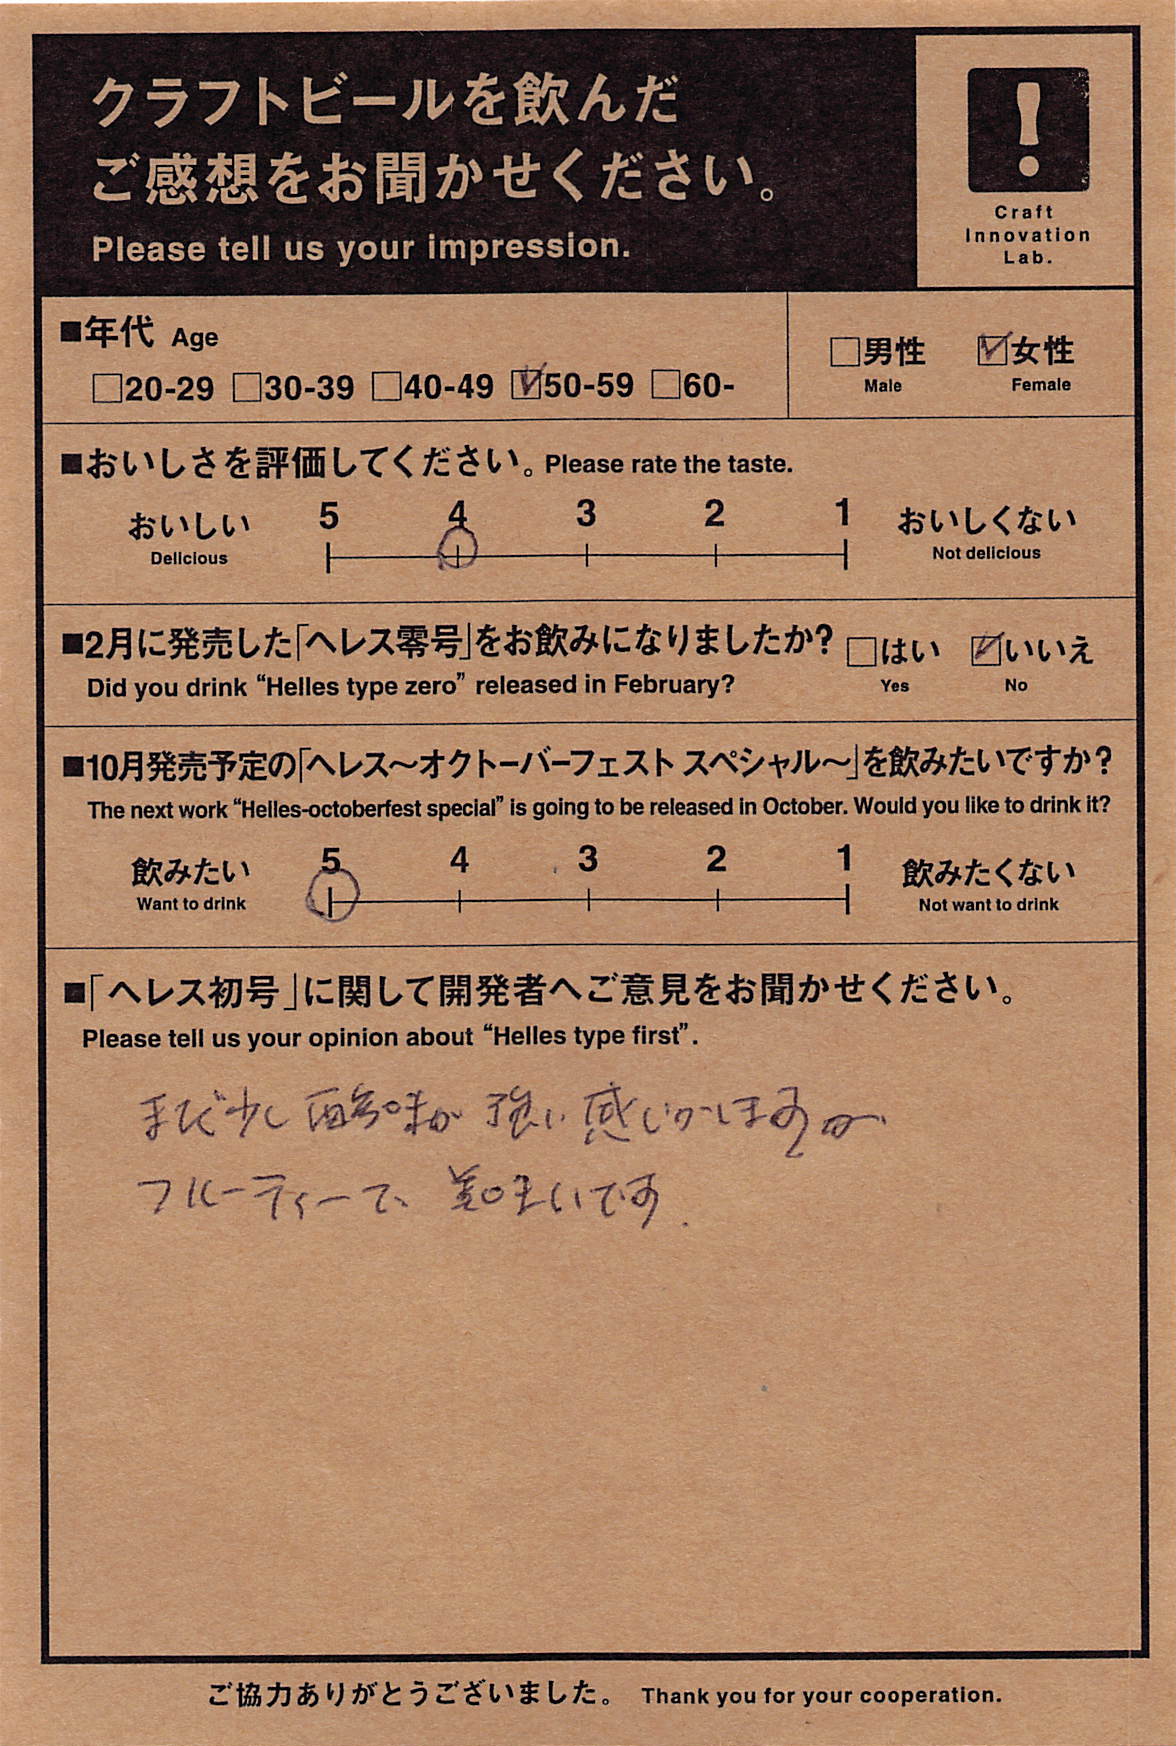 クラフトビールを飲んだ
ご感想をお聞かせください。
Please tell us your impression.
Craft
Innovation
Lab.
■年代 Age
□20-29 □30-39 □40-49 ☑50-59 □60-
□男性 ☑女性
Male Female
■おいしさを評価してください。Please rate the taste.
おいしい 5 4 3 2 1 おいしくない
Delicious Not delicious
■2月に発売した「ヘレス零号」をお飲みになりましたか? □はい ☑いいえ
Did you drink “Helles type zero” released in February? Yes No
■10月発売予定の「ヘレス〜オクトーバーフェスト スペシャル〜」を飲みたいですか?
The next work “Helles-octoberfest special” is going to be released in October. Would you like to drink it?
飲みたい 5 4 3 2 1 飲みたくない
Want to drink Not want to drink
■「ヘレス初号」に関して開発者へご意見をお聞かせください。
Please tell us your opinion about “Helles type first”.
まだ少し酸味が強い感じがしますが
フルーティーで、美味いです.
ご協力ありがとうございました。 Thank you for your cooperation.